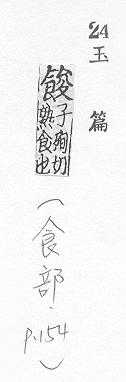 24 玉篇
餕
子殉切
熟食也
(食部, p.154)